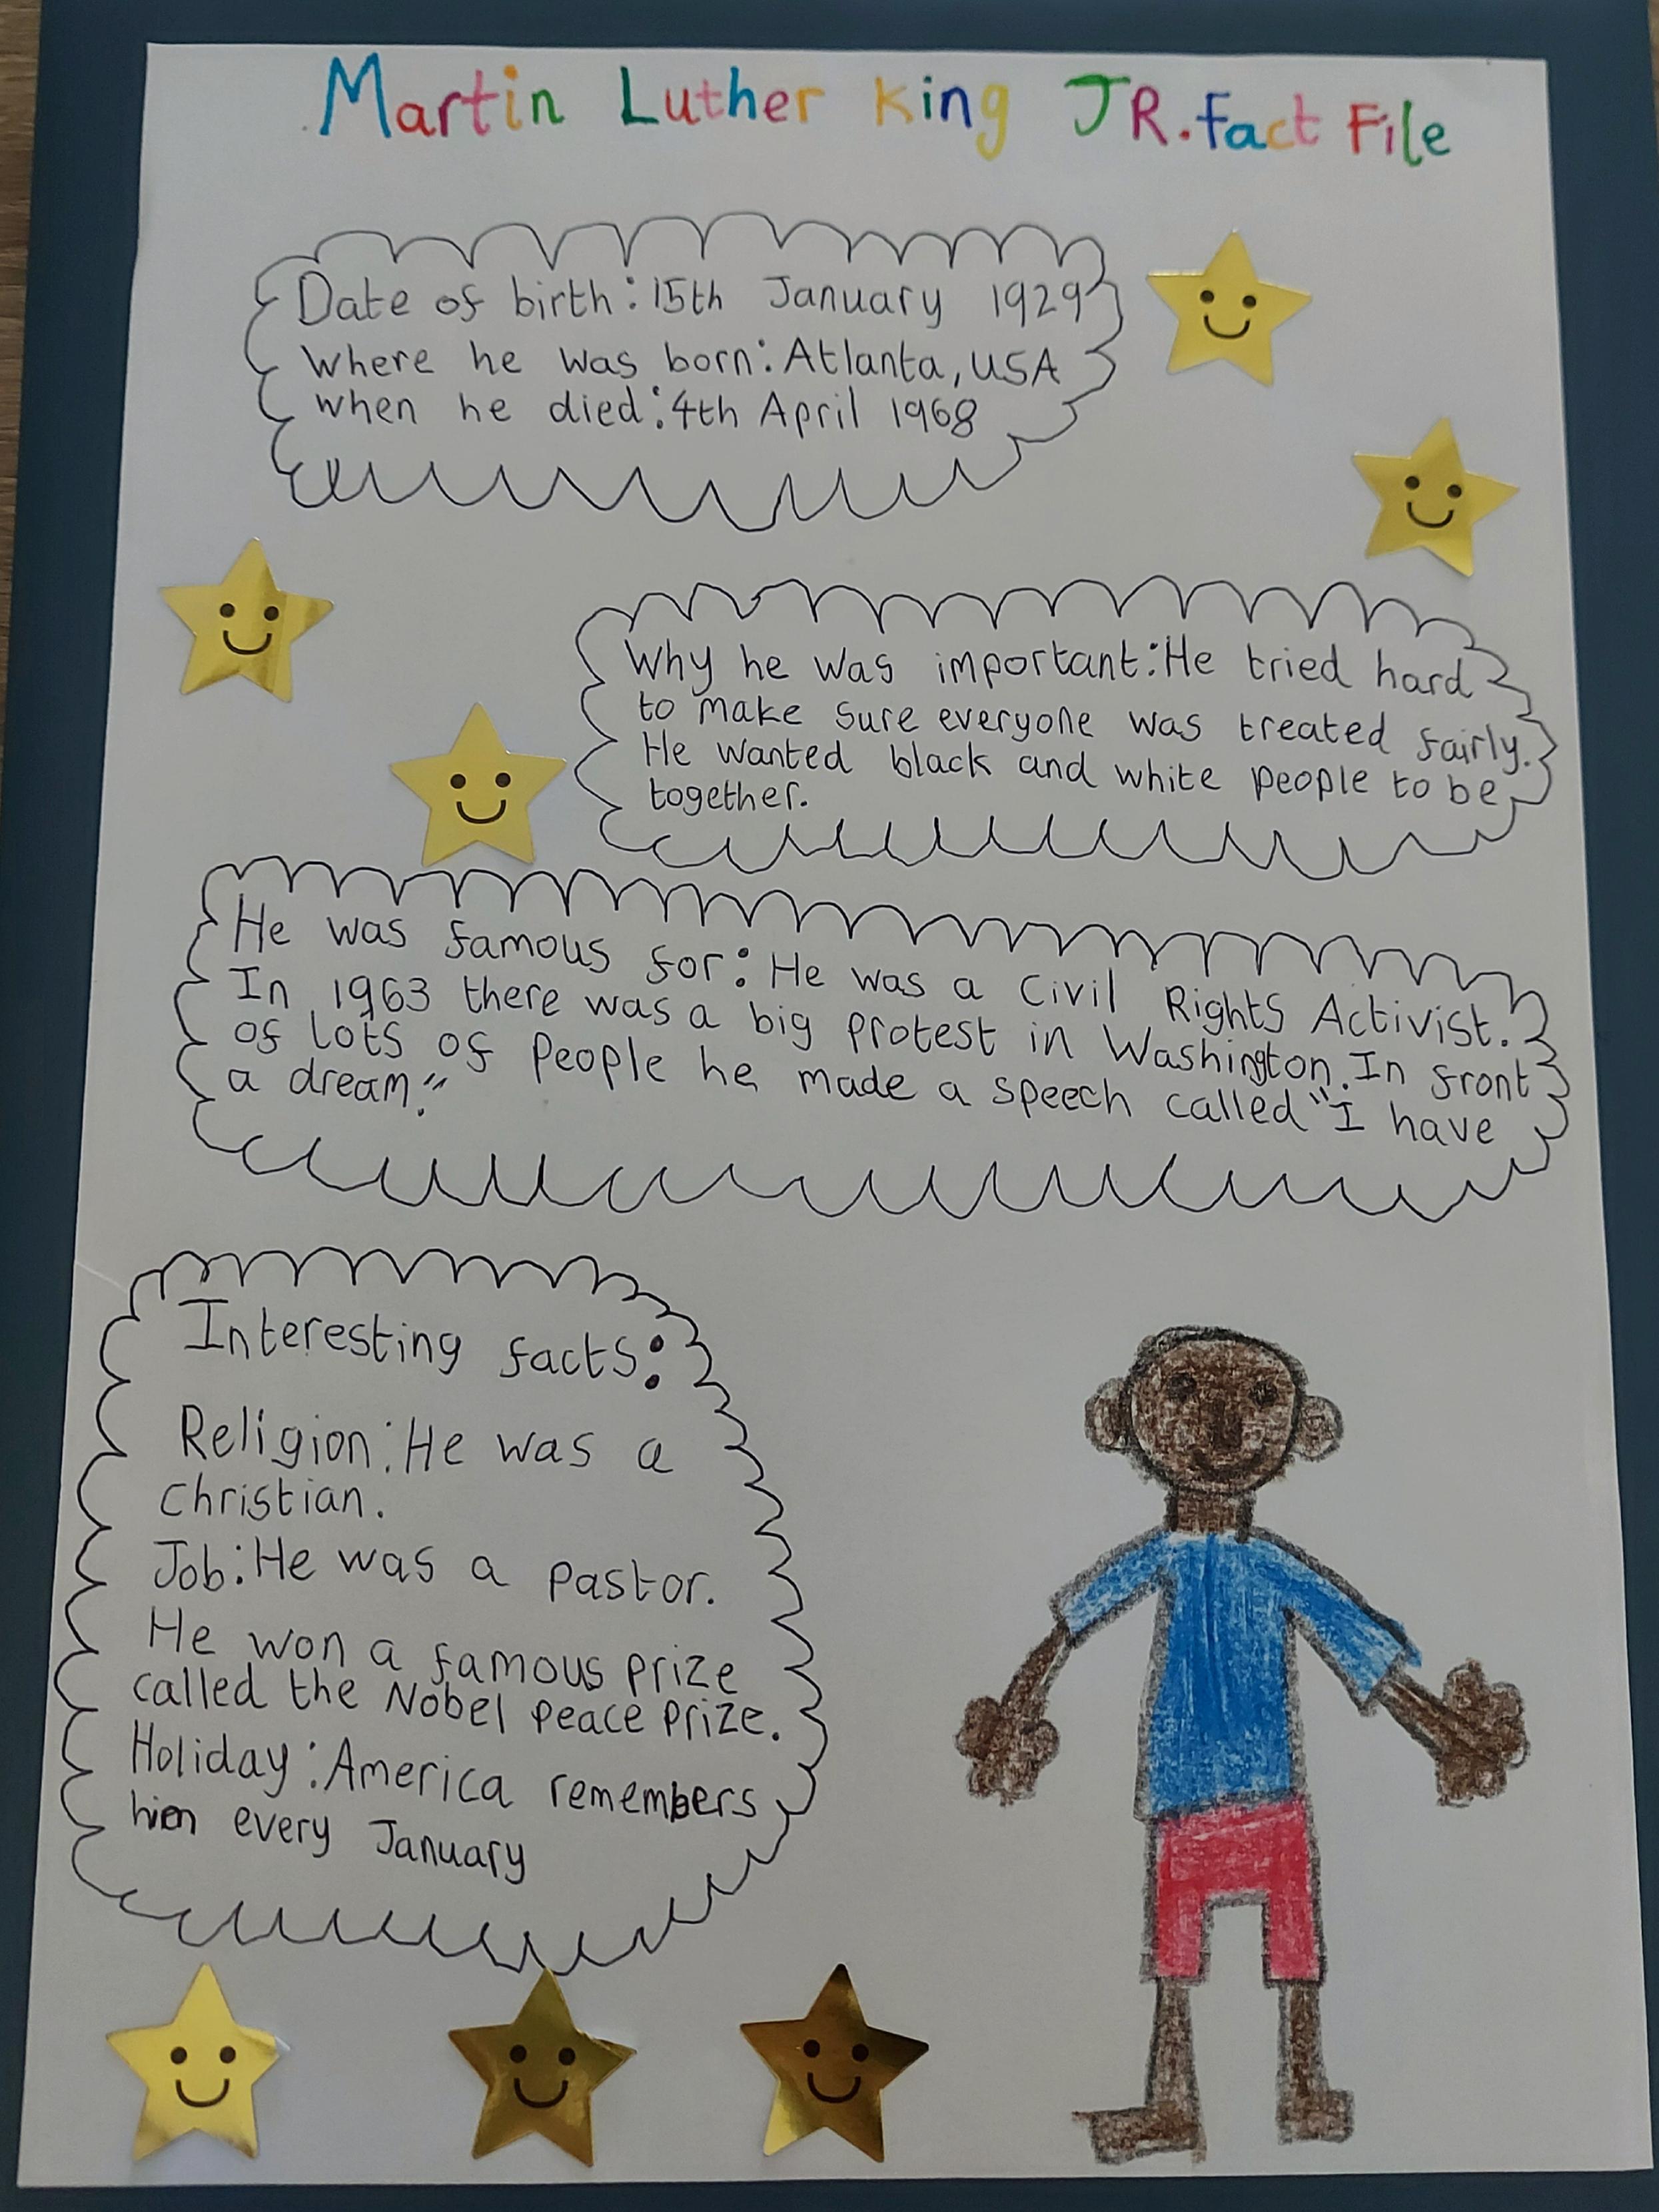 Martin Luther King JR. Fact File
Date of birth: 15th January 1929
where he was born: Atlanta, USA
when he died: 4th April 1968
Why he was important: He tried hard
to make sure everyone was treated fairly.
He wanted black and white people to be
together.
He was famous for: He was a Civil Rights Activist.
In 1963 there was a big protest in Washington. In front
of lots of people he made a speech called "I have
a dream."
Interesting facts:
Religion: He was a
Christian.
Job: He was a pastor.
He won a famous prize
called the Nobel peace prize.
Holiday: America remembers
him every January